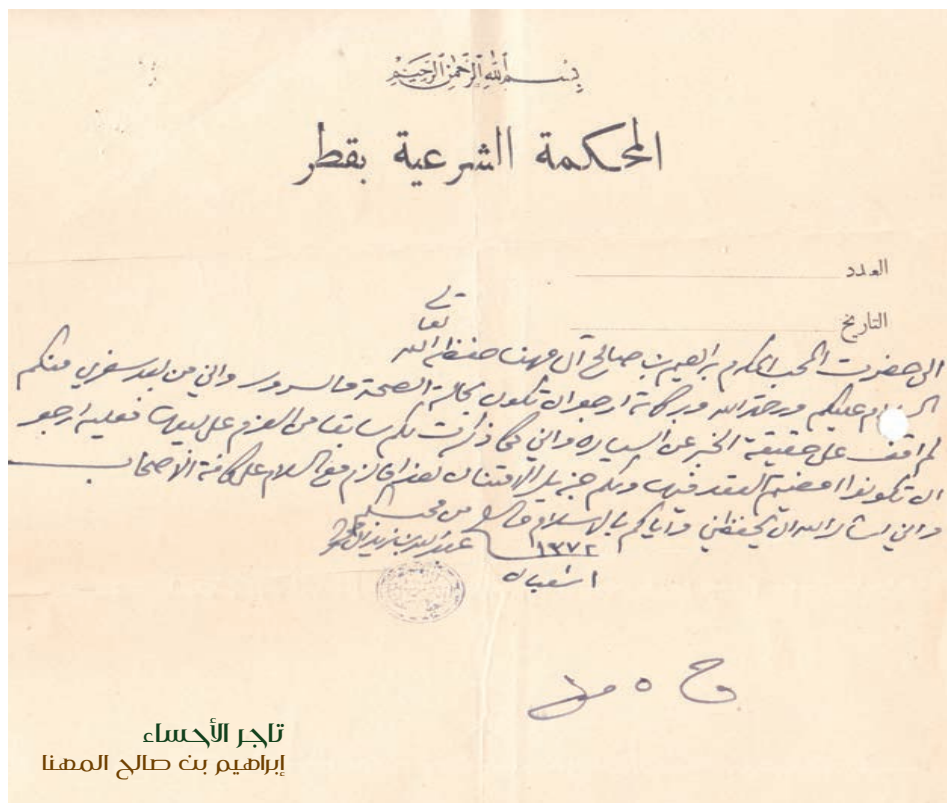 بسم الله الرحمن الرحيم
المحكمة الشرعية بقطر
العدد
التاريخ
الى حضرت المحب المكرم ابراهيم بن صالح آل مهنا حفظه الله تعالى
السلام عليكم ورحمة الله وبركاته ارجو ان تكون بحالة الصحة والسرور واني من بعد سفري منكم
لم اقف على حقيقة الخبر عن السياره واني كما ذكرت لكم سابقا من العزم على بيعها فعليه ارجو
ان تكونوا امضيتم العقد فيها ولكم جزيل الامتنان هذا لازم مع السلام على كافة الأصحاب
واني اسئل الله ان يحفظني واياكم بالاسلام والسلام من محبكم
عبدالله بن زيد آل محمود
١٣٧٢
١ شعبان
تاجر الأحساء
إبراهيم بن صالح المهنا